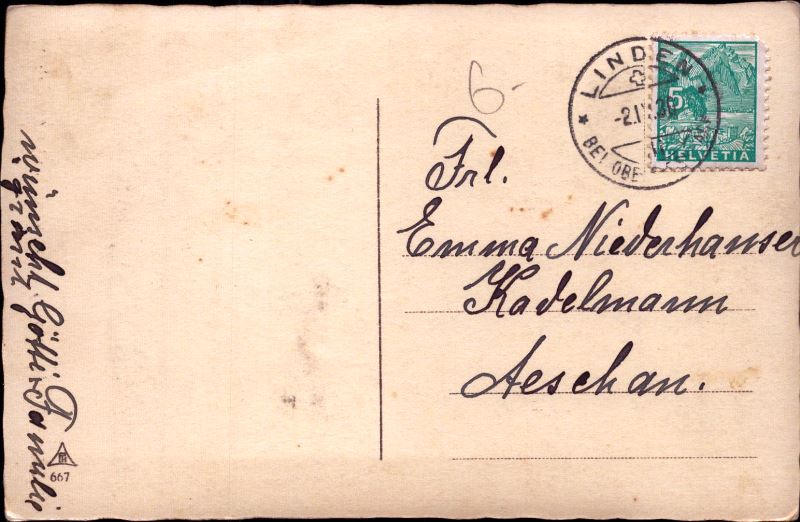 6.-
LINDEN
-2.I
BEI OBE
5
HELVETIA
Frl.
Emma Niederhauser
Kadelmann
Aeschau.
wünscht Götti Familie
667